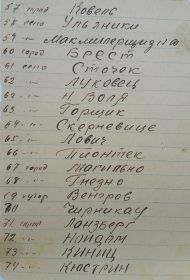 57 город Ковель
58 село Ульяники
59 -"- Макл
60 город БРЕСТ
61 село Сточок
62 -"- Луковец
62 -"- Н. ВОЛЯ
63 -"- Горщик
64 -"- Скерневице
65 -"- Лович
66 -"- Пионтек
67 город Могильно
68 -"- Гнедно
69 хутор Венгров
70 -"- Чирникау
71 город Ланзберг
72 -"- НОЙДАМ
73 -"- КИНИЦ
74 -"- КЮСТРИН